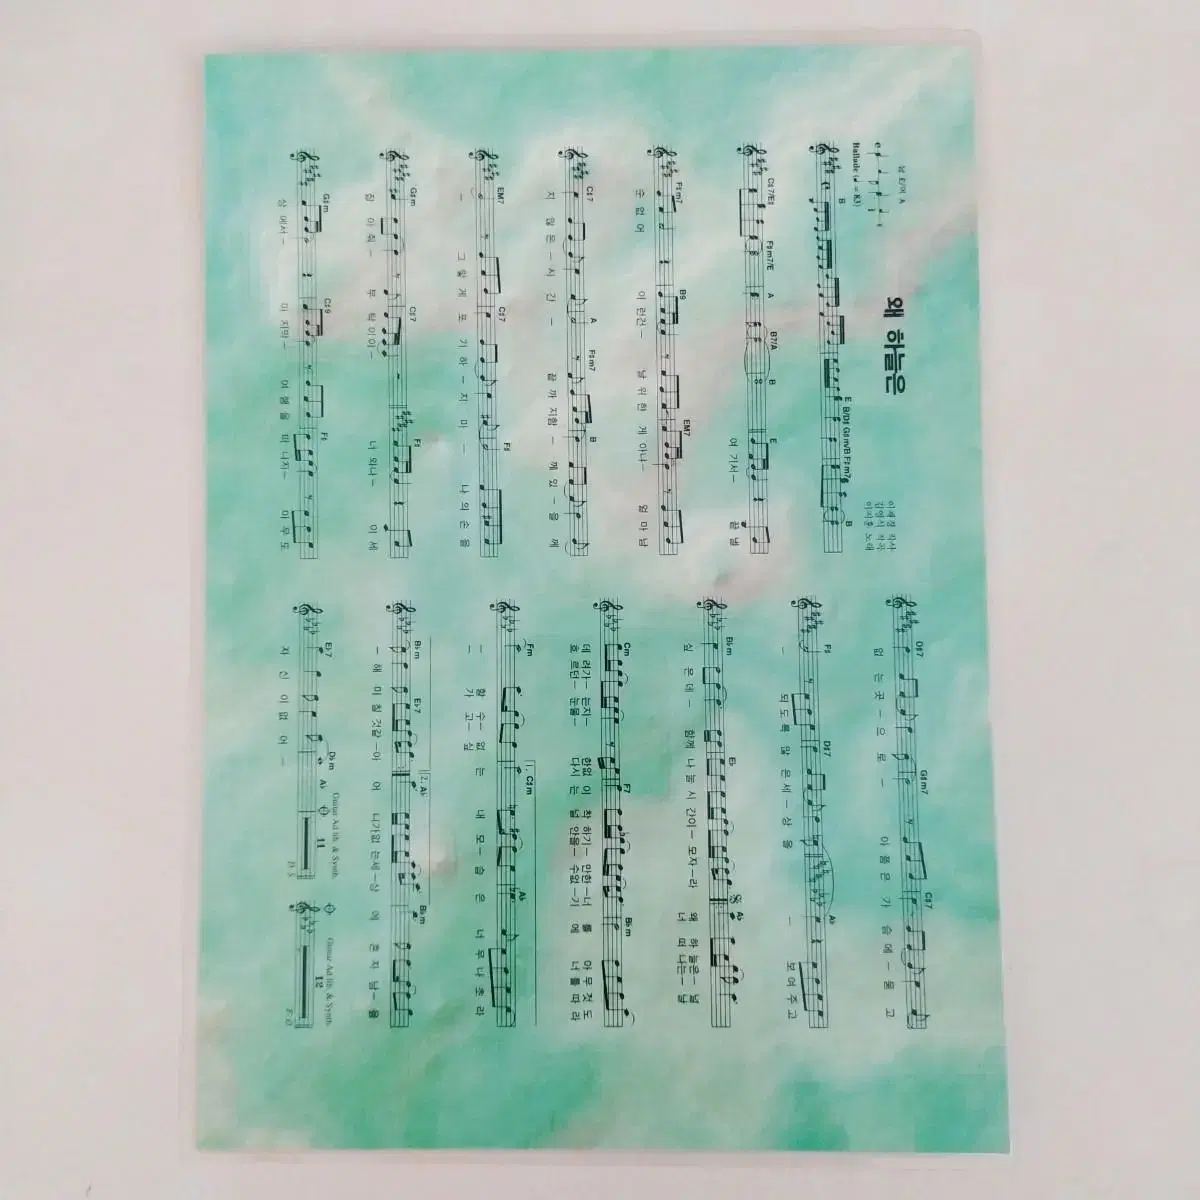 왜 하늘은
남 E/여 A
Ballade (♩ = 83)
이희경 작사
김영석 작곡
이지훈 노래
B E B/D♯ G♯m/B F♯m7 B
C♯7/E♯ F♯m7/E A B7/A B E
여 기서– 끝 낼
F♯m7 B9 EM7
순 없 어 이 런건– 날 위 한 게 아냐– 얼 마 남
C♯7 A F♯m7 B
지 않 은 – 시 간 – 끝 까 지함 – 께 있 – 을 께
EM7 C♯7 F♯
– 그 렇 게 포 기 하 – 지 마 – 나 의 손 을
G♯m C♯7 F♯
잡 아 줘 – 부 탁 이 이 – 너 와나 – 이 세
G♯m C♯9 F♯
상 에서 – 마 지막 – 여 행 을 떠 나지 – 아 무 도
D♯7 G♯m7 C♯7
없 는 곳 – 으 로 – 아 픔 은 가 슴 에 – 묻 고
F♯ D♯7 A♭
– 되 도 록 많 은 세 – 상 을 – 보 여 주 고
B♭m E♭ A♭
싶 은 데 – 함께 나 눌 시 간이 – 모자 – 라 왜 하 늘은 – 널
너 떠 나는 – 날
Cm F7 B♭m
데 려가 – 는지 – 한없 이 착 하기 – 만한 – 너 를 아 무 것 도
흐 르던 – 눈물 – 다시 는 널 안을 – 수없 – 기 에 너 를 따 라
Fm 1. C♯m A♭
– 할 수 – 없 는 내 모 – 습 은 너 무 나 초 라
– 가 고 – 싶
B♭m E♭7 2. A♭ B♭m
– 해 미 칠 것같 – 아 어 니가없 는세 – 상 에 혼 자 남 – 을
E♭7 D♭m A♭ Guitar Ad lib. & Synth. 11 D.S.
자 신 이 없 어 –
Guitar Ad lib. & Synth. 12 F.O